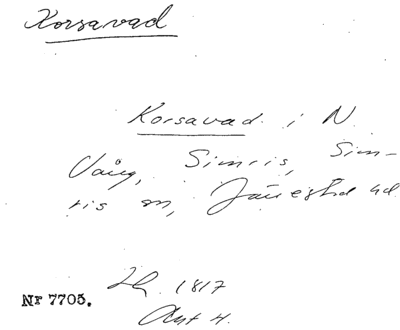 Korsavad
Korsavad i N
Vång, Simris, Sim-
ris sn, Järrestad hd
1817
Nr 7705.
Akt 4.